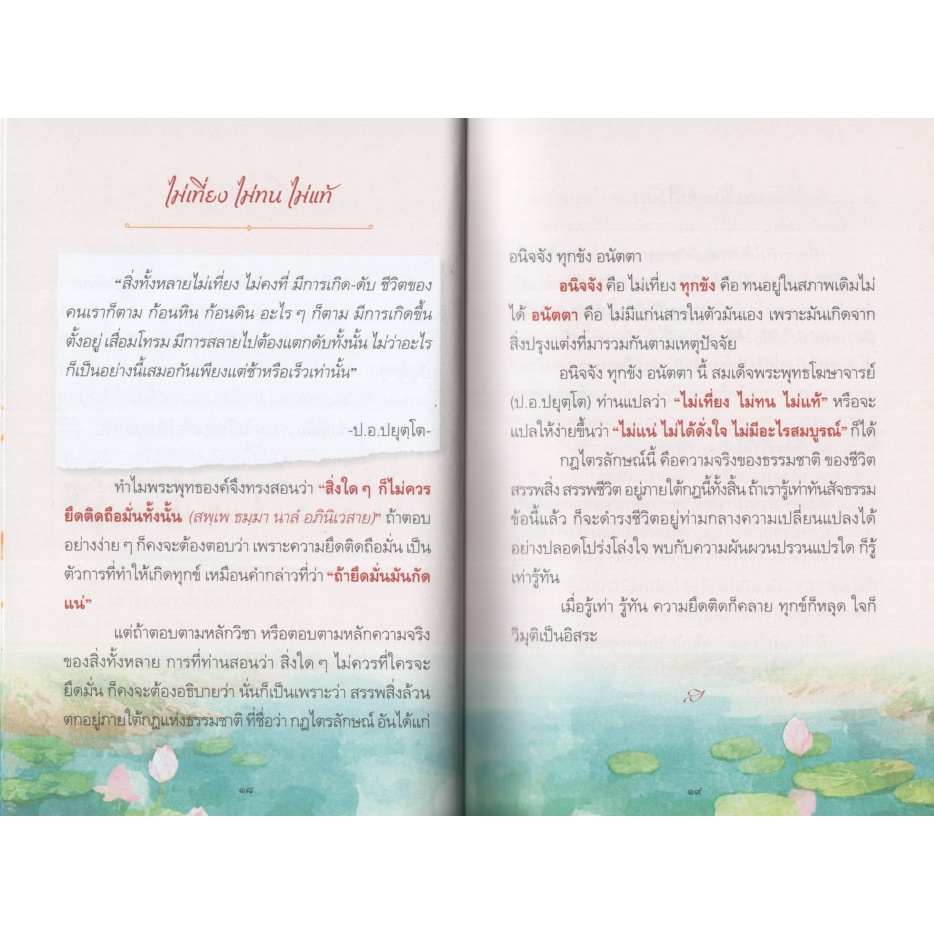 ไม่เที่ยง ไม่ทน ไม่แท้
“สิ่งทั้งหลายไม่เที่ยง ไม่คงที่ มีการเกิด-ดับ ชีวิตของ
คนเราก็ตาม ก้อนหิน ก้อนดิน อะไร ๆ ก็ตาม มีการเกิดขึ้น
ตั้งอยู่ เสื่อมโทรม มีการสลายไปต้องแตกดับทั้งนั้น ไม่ว่าอะไร
ก็เป็นอย่างนี้เสมอกันเพียงแต่ช้าหรือเร็วเท่านั้น”
-ป.อ.ปยุตฺโต-
ทำไมพระพุทธองค์จึงทรงสอนว่า “สิ่งใด ๆ ก็ไม่ควร
ยึดติดถือมั่นทั้งนั้น (สพฺเพ ธมฺมา นาลํ อภินิเวสาย)” ถ้าตอบ
อย่างง่าย ๆ ก็คงจะต้องตอบว่า เพราะความยึดติดถือมั่น เป็น
ตัวการที่ทำให้เกิดทุกข์ เหมือนคำกล่าวที่ว่า “ถ้ายึดมั่นมันกัด
แน่”
แต่ถ้าตอบตามหลักวิชา หรือตอบตามหลักความจริง
ของสิ่งทั้งหลาย การที่ท่านสอนว่า สิ่งใด ๆ ไม่ควรที่ใครจะ
ยึดมั่น ก็คงจะต้องอธิบายว่า นั่นก็เป็นเพราะว่า สรรพสิ่งล้วน
ตกอยู่ภายใต้กฎแห่งธรรมชาติ ที่ชื่อว่า กฎไตรลักษณ์ อันได้แก่
๑๘
อนิจจัง ทุกขัง อนัตตา
อนิจจัง คือ ไม่เที่ยง ทุกขัง คือ ทนอยู่ในสภาพเดิมไม่
ได้ อนัตตา คือ ไม่มีแก่นสารในตัวมันเอง เพราะมันเกิดจาก
สิ่งปรุงแต่งที่มารวมกันตามเหตุปัจจัย
อนิจจัง ทุกขัง อนัตตา นี้ สมเด็จพระพุทธโฆษาจารย์
(ป.อ.ปยุตฺโต) ท่านแปลว่า “ไม่เที่ยง ไม่ทน ไม่แท้” หรือจะ
แปลให้ง่ายขึ้นว่า “ไม่แน่ ไม่ได้ดั่งใจ ไม่มีอะไรสมบูรณ์” ก็ได้
กฎไตรลักษณ์นี้ คือความจริงของธรรมชาติ ของชีวิต
สรรพสิ่ง สรรพชีวิต อยู่ภายใต้กฎนี้ทั้งสิ้น ถ้าเรารู้เท่าทันสัจธรรม
ข้อนี้แล้ว ก็จะดำรงชีวิตอยู่ท่ามกลางความเปลี่ยนแปลงได้
อย่างปลอดโปร่งโล่งใจ พบกับความผันผวนปรวนแปรใด ก็รู้
เท่ารู้ทัน
เมื่อรู้เท่า รู้ทัน ความยึดติดก็คลาย ทุกข์ก็หลุด ใจก็
วิมุติเป็นอิสระ
๑๙